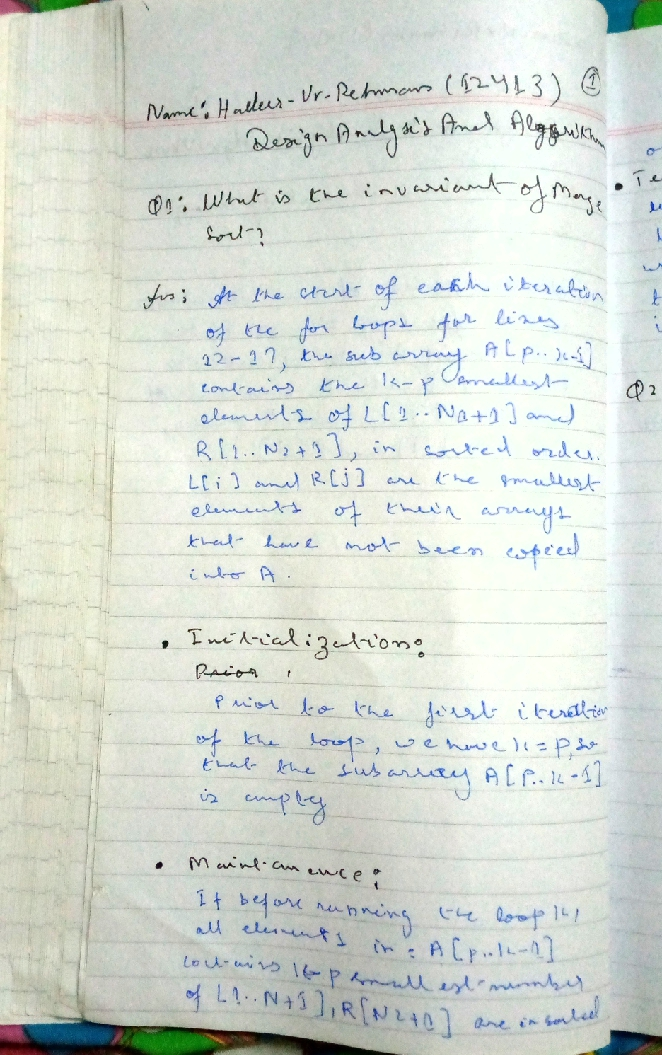 Name: Haleer-Ur-Rehman (12413) ①
Design Analysis And Algorithm
Q1: What is the invariant of Merge
Sort?
Ans: At the start of each iteration
of the for loops for lines
12-17, the sub array A[p..k-1]
contains the k-p smallest
elements of L[1..N1+1] and
R[1..N2+1], in sorted order.
L[i] and R[j] are the smallest
elements of their arrays
that have not been copied
into A.
• Initialization:
Prior
Prior to the first iteration
of the loop, we have k=p, so
that the subarray A[p..k-1]
is empty
• Maintanence:
If before running the loop k,
all elements in: A[p..k-1]
contains k-p smallest number
of L1..N+1], R[N2+1] are in sorted
• Te
Q2